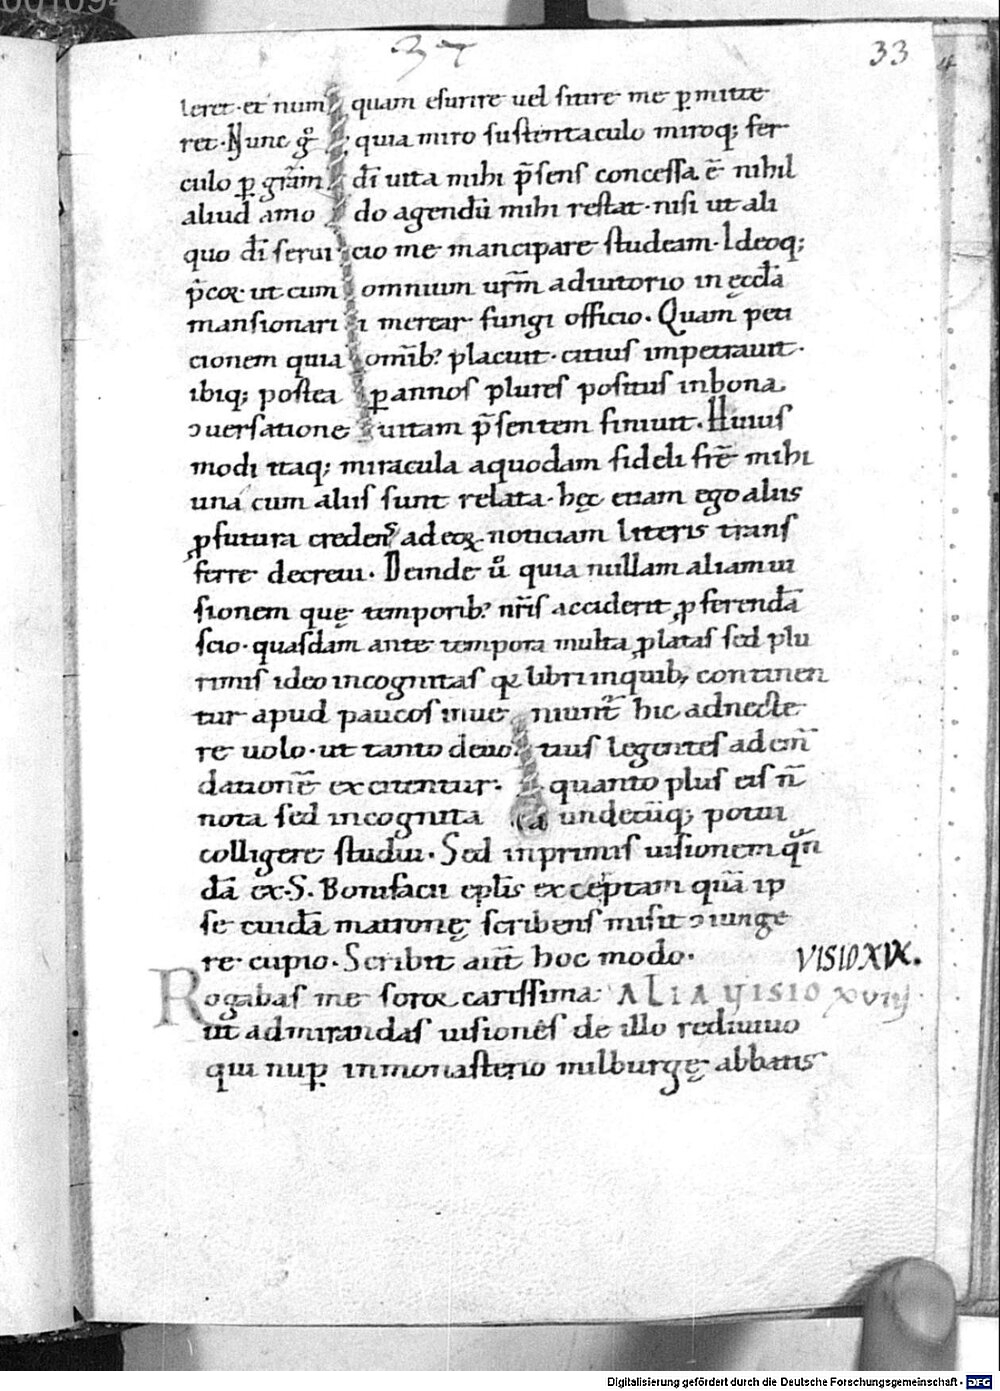 37
33
leret · et num quam esurire uel sitire me p̱mitte
ret · Nunc gͦ quia miro sustentaculo miroq; fer
culo p̱ gr̄am dī uita mihi p̄sens concessa ē nihil
aliud amo do agendū mihi restat · nisi ut ali
quo dī serui cio me mancipare studeam · Ideoq;
p̄coꝛ · ut cum omnium ur̄m adiutorio in ęccl̄a
mansionari i merear fungi officio · Quam peti
cionem quia om̄ib; placuit · citius impetrauit ·
ibiq; postea p̱ annos plures positus inbona
ↄuersatione uitam p̄sentem finiuit · Huius
modi itaq; miracula aquodam fideli fr̄e mihi
una cum aliis sunt relata · hęc etiam ego aliis
ꝓfutura credens ad eoꝝ noticiam literis trans
ferre decreui · Deinde ů quia nullam aliam ui
sionem quę temporib; nr̄is acciderit ꝓferendā
scio · quasdam ante tempora multa ꝓlatas sed plu
rimis ideo incognitas qꝛ libri inquib; continen
tur apud paucos inue niunt̄ hic adnecte
re uolo · ut tanto deuo tius legentes ad em̄
dationē excitentur · quanto plus eis n̄
nota sed incognita ea undecūq; potui
colligere studui · Sed inprimis uisionem qͣn
dā ex · S · Bonifacii ep̄lis exceptam quā ip
se cuidā matronę scribens misit ↄiunge
re cupio · Scribit aūt hoc modo ·
VISIO XIX.
Rogabas me soroꝛ carissima · ALIA VISIO XVIIIJ
ut admirandas uisiones de illo rediuiuo
qui nup̱ inmonasterio milburgę abbatis
Digitalisierung gefördert durch die Deutsche Forschungsgemeinschaft - DFG